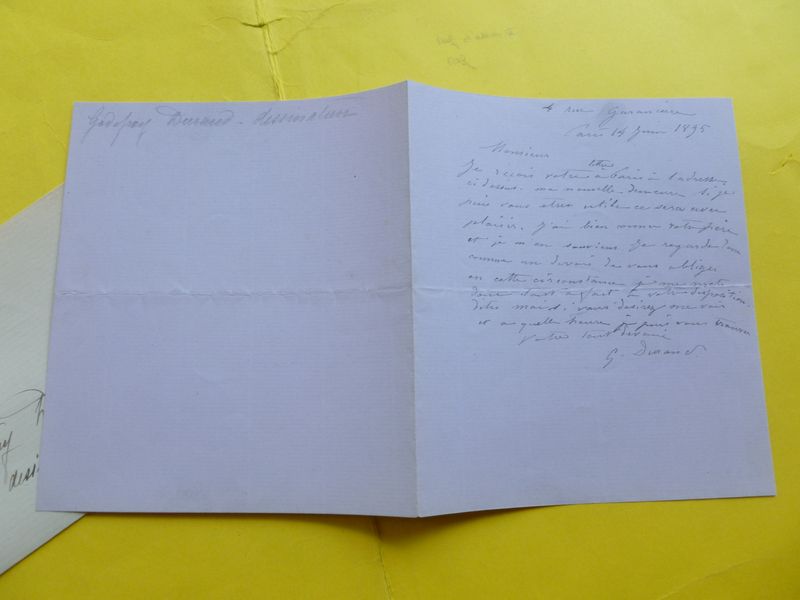 Godefroy Durand - dessinateur
4 rue Garancière
Paris 14 Juin 1895
Monsieur
Je reçois votre lettre à Paris à l'adresse
ci dessus. ma nouvelle demeure si je
puis vous etre utile ce sera avec
plaisir. J'ai bien connu votre père
et je m'en souviens. Je regarde donc
comme un devoir de vous obliger
en cette circonstance je me mets
donc tout a fait à votre disposition.
Dites moi si vous desirez me voir
et a quelle heure je puis vous trouver
Votre tout dévoué
G. Durand